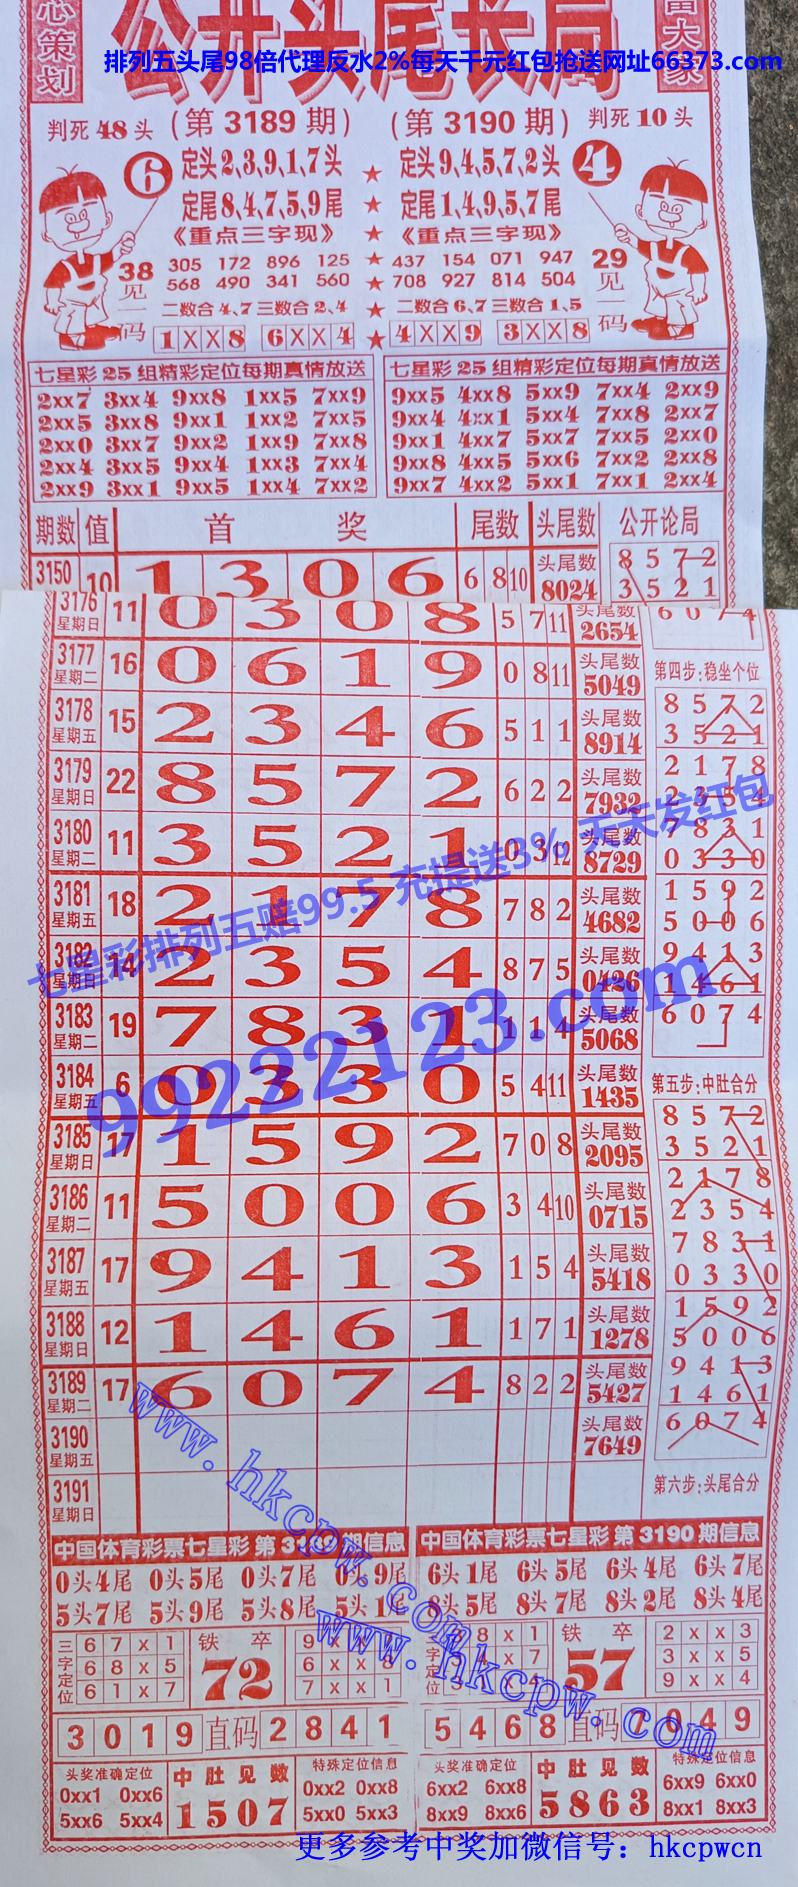 心策划
公开头尾长局
富大家
排列五头尾98倍代理反水2%每天千元红包抢送网址66373.com
判死 48 头 (第 3189 期) (第 3190 期) 判死 10 头
6 定头2、3、9、1、7头 ★ 定头9、4、5、7、2头 4
定尾8、4、7、5、9尾 ★ 定尾1、4、9、5、7尾
《重点三字现》 ★ 《重点三字现》
38见一码 305 172 896 125 ★ 437 154 071 947 29见一码
568 490 341 560 708 927 814 504
二数合4、7三数合2、4 ★ 二数合6、7三数合1、5
1XX8 6XX4 ★ 4XX9 3XX8
七星彩25组精彩定位每期真情放送 七星彩25组精彩定位每期真情放送
2xx7 3xx4 9xx8 1xx5 7xx9 9xx5 4xx8 5xx9 7xx4 2xx9
2xx5 3xx8 9xx1 1xx2 7xx5 9xx4 4xx1 5xx4 7xx8 2xx7
2xx0 3xx7 9xx2 1xx9 7xx8 9xx1 4xx7 5xx7 7xx5 2xx0
2xx4 3xx5 9xx4 1xx3 7xx4 9xx8 4xx5 5xx6 7xx2 2xx8
2xx9 3xx1 9xx5 1xx4 7xx2 9xx7 4xx2 5xx1 7xx1 2xx4
期数 值 首 奖 尾数 头尾数 公开论局
3150 10 1 3 0 6 6 8 10 头尾数 8024
8 5 7 2
3 5 2 1
3176 星期日 11 0 3 0 8 5 7 11 头尾数 2654
6 0 7 4
3177 星期二 16 0 6 1 9 0 8 11 头尾数 5049
第四步:稳坐个位
3178 星期五 15 2 3 4 6 5 1 1 头尾数 8914
8 5 7 2
3 5 2 1
3179 星期日 22 8 5 7 2 6 2 2 头尾数 7932
2 1 7 8
2 3 5 4
3180 星期二 11 3 5 2 1 0 3 12 头尾数 8729
7 8 3 1
0 3 3 0
3181 星期五 18 2 1 7 8 7 8 2 头尾数 4682
1 5 9 2
5 0 0 6
3182 星期日 14 2 3 5 4 8 7 5 头尾数 0426
9 4 1 3
1 4 6 1
3183 星期二 19 7 8 3 1 1 1 4 头尾数 5068
6 0 7 4
3184 星期五 6 0 3 3 0 5 4 11 头尾数 1435
第五步:中肚合分
3185 星期日 17 1 5 9 2 7 0 8 头尾数 2095
8 5 7 2
3 5 2 1
3186 星期二 11 5 0 0 6 3 4 10 头尾数 0715
2 1 7 8
2 3 5 4
3187 星期五 17 9 4 1 3 1 5 4 头尾数 5418
7 8 3 1
0 3 3 0
3188 星期日 12 1 4 6 1 1 7 1 头尾数 1278
1 5 9 2
5 0 0 6
3189 星期二 17 6 0 7 4 8 2 2 头尾数 5427
9 4 1 3
1 4 6 1
3190 星期五 头尾数 7649
6 0 7 4
3191 星期日
第六步:头尾合分
七星彩排列五赔99.5 充提送3% 天天发红包
99222123.com
www.hkcpw.com
www.hkcpw.com
中国体育彩票七星彩 第3189期信息 中国体育彩票七星彩 第3190期信息
0头4尾 0头5尾 0头7尾 0头9尾 6头1尾 6头5尾 6头4尾 6头7尾
5头7尾 5头9尾 5头8尾 5头1尾 8头5尾 8头7尾 8头2尾 8头4尾
三字定位 铁 卒 三字定位 铁 卒
6 7 x 1 8 x 1 2 x x 3
6 8 x 5 72 6 x x 8 4 x 7 57 3 x x 5
6 1 x 7 7 x x 1 9 x x 4
3 0 1 9 直码 2 8 4 1 5 4 6 8 直码 7 0 4 9
头奖准确定位 中肚见数 特殊定位信息 头奖准确定位 中肚见数 特殊定位信息
0xx1 0xx6 1507 0xx2 0xx8 6xx2 6xx8 5863 6xx9 6xx0
5xx6 5xx4 5xx0 5xx3 8xx9 8xx6 8xx1 8xx3
更多参考中奖加微信号：hkcpwcn